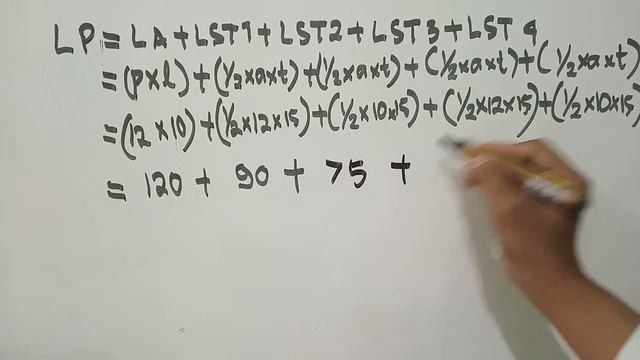 LP = LA + LST1 + LST2 + LST3 + LST4
= (p x l) + (1/2 x a x t) + (1/2 x a x t) + (1/2 x a x t) + (1/2 x a x t)
= (12 x 10) + (1/2 x 12 x 15) + (1/2 x 10 x 15) + (1/2 x 12 x 15) + (1/2 x 10 x 15)
= 120 + 90 + 75 +